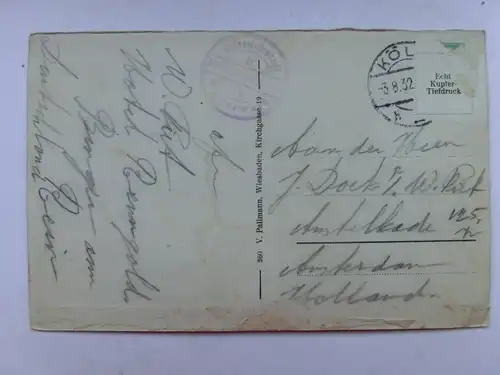 KÖL
-6.8.32
Echt
Kupfer-
Tiefdruck
260 V. Pallmann, Wiesbaden, Kirchgasse 19
Afz
W. Piet
Hotel Reingold
Bingen am
Rein
Aan den Heer
J. Dock p/a W. Piet
Amstelkade 125
Amsterdam
Holland.